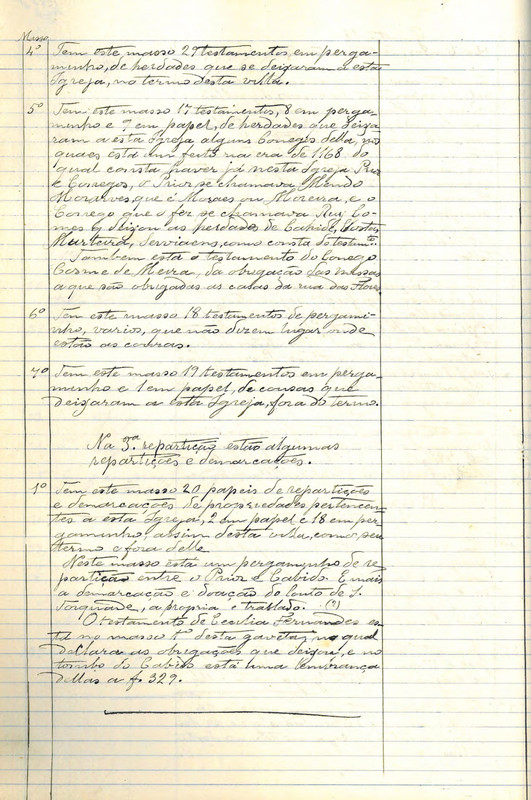 Masso
4º Tem este masso 29 testamentos, em perga-
minho, de herdades que se deixaram a esta
Igreja, no termo desta villa.
5º Tem este masso 17 testamentos, 8 em perga-
minho e 9 em papel, de herdades que deixa-
ram a esta Igreja alguns Conegos della, no
quaes está um feito na era de 1168 do
qual consta haver já nesta Igreja Prior
e Conegos, o Prior se chamava Mendo
que é Moraes ou Moreira, e o
Conego que o fez se chamava Ruy Go-
mes q deixou as herdades de
Murteira, Serviaens, como consta do testamto.
Tambem está o testamento do Conego
Cosme de Meira, da obrigação das missas
a que são obrigadas as casas da rua das Flores.
6º Tem este masso 18 testamentos de pergami-
nho, varios, que não dizem lugar onde
estão as couzas.
7º Tem este masso 19 testamentos em perga-
minho e 1 em papel, de causas que
deixaram a esta Igreja, fora do termo.
Na 3ª repartição estão algumas
repartições e demarcações.
1º Tem este masso 20 papeis de repartições
e demarcações de propriedades pertencen-
tes a esta Igreja, 2 em papel e 18 em per-
gaminho, assim desta villa, como seu
termo e fora delle.
Neste masso está um pergaminho de re-
partição entre o Prior e Cabido. E mais
a demarcação e doação do Couto de S.
Torquade, a propria e traslado. (?)
O testamento de Cecilia Fernandes es-
tá no masso 1º desta gaveta, no qual
declara as obrigações que deixou, e no
tombo do Cabido está uma lembrança
dellas a f. 329.